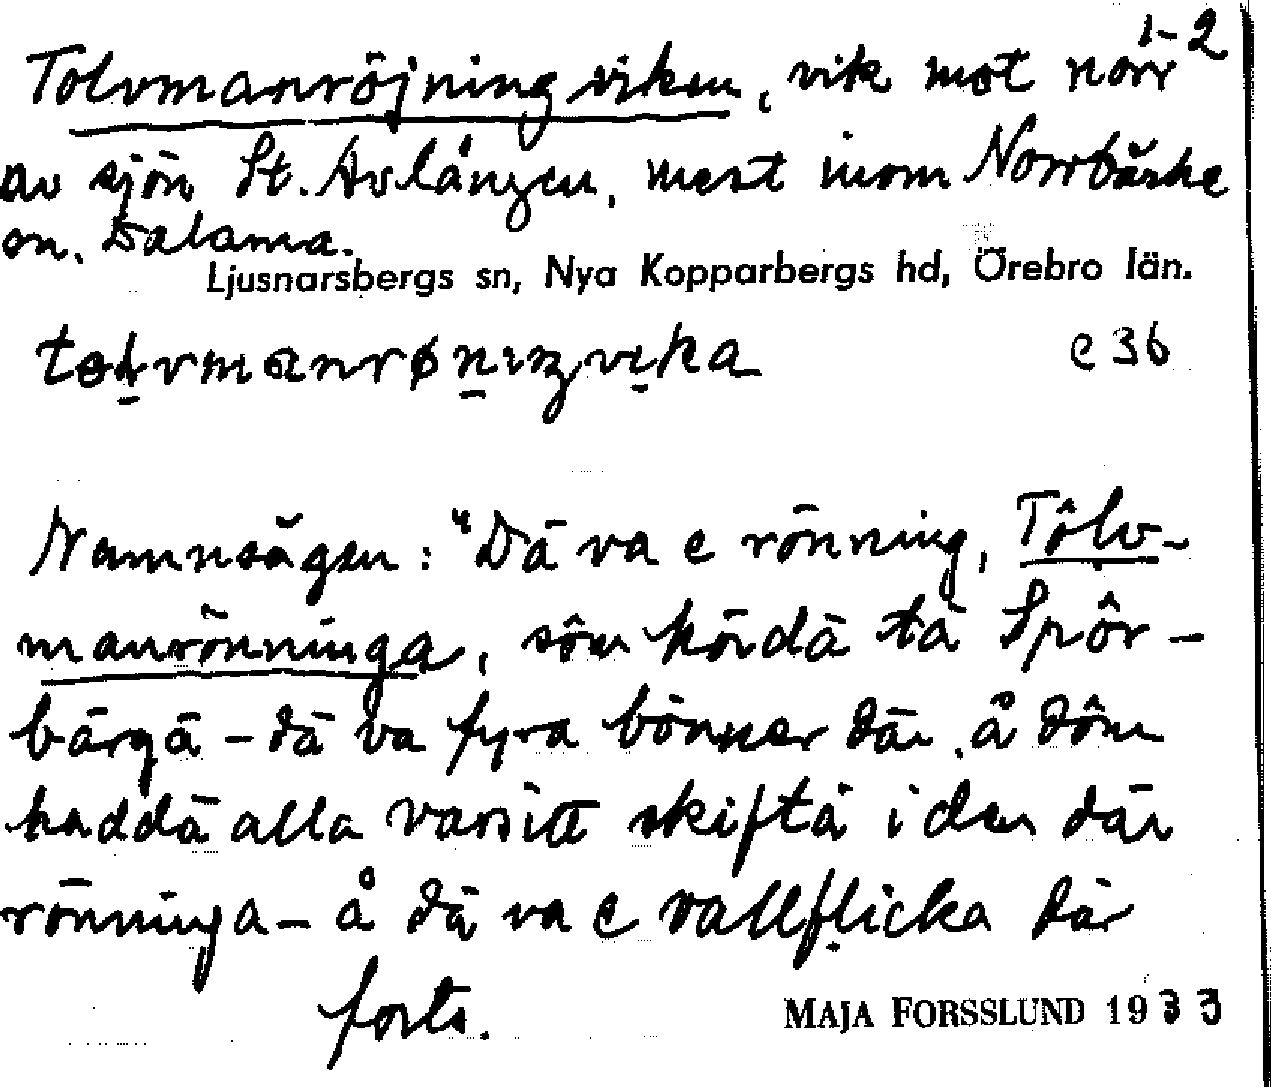 1-2
Tolvmanröjningviken, vik mot norr
av sjön St. Avlången, mest inom Norrbärke
sn. Dalarna.
Ljusnarsbergs sn, Nya Kopparbergs hd, Örebro län.
c 36
Namnsägen: "Dä va e rönning, Tôlv-
manrönninga, sôm hördä tä Spôr-
bärgä - dä va fyra bönner där, å dôm
haddä alla varsitt skiftä i den där
rönninga - å dä va e vallflicka där
forts.
MAJA FORSSLUND 1933